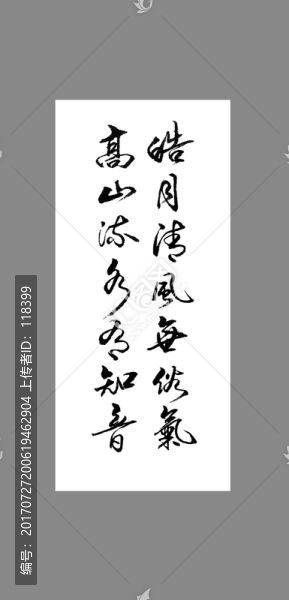 皓月清风無俗氣
高山流水有知音
编号：20170727200619462904 上传者ID：118399